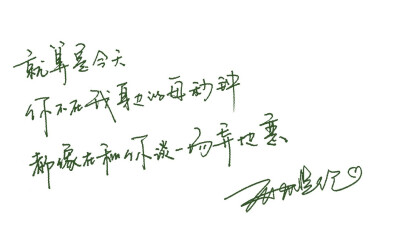 就算是今天
你不在我身边的每秒钟
都像在和你谈一场异地恋